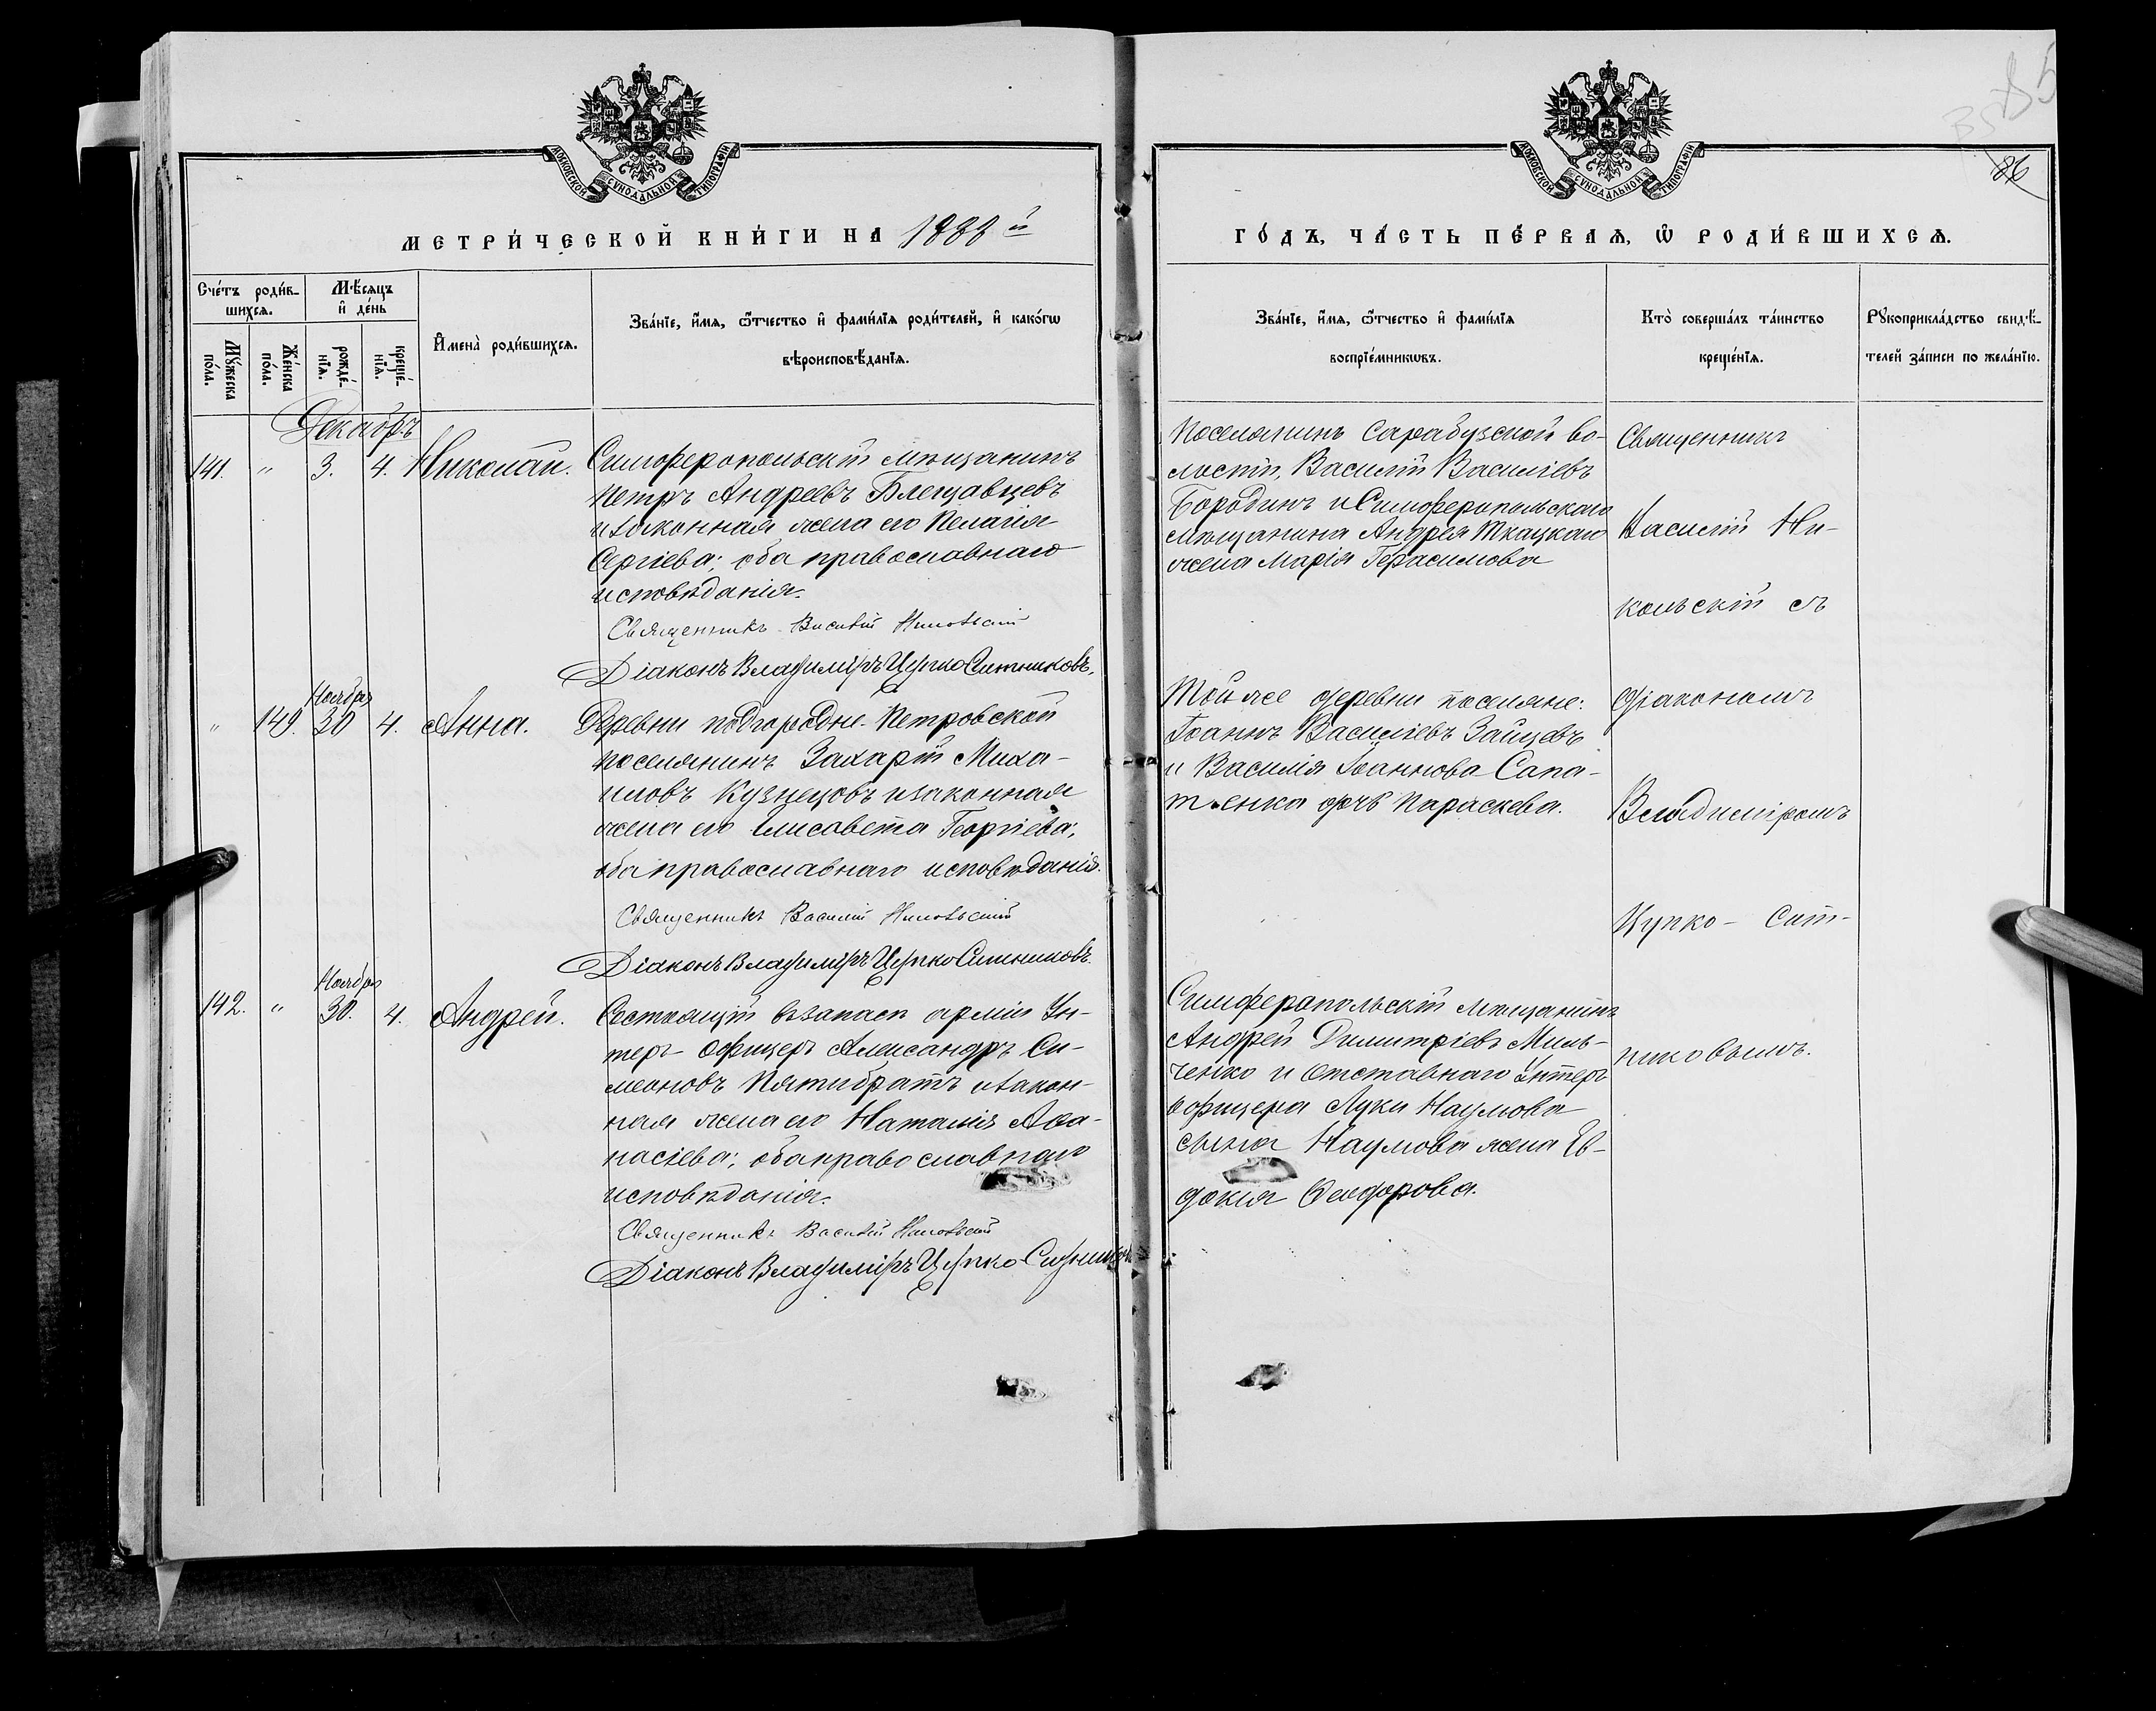 85
86
МОСКОВСКОЙ СУНОДАЛЬНОЙ ТИПОГРАФІИ
МОСКОВСКОЙ СУНОДАЛЬНОЙ ТИПОГРАФІИ
МЕТРИ́ЧЕСКОЙ КНИ́ГИ НА 1888 й
ГО́ДЪ, ЧА́СТЬ ПЕ́РВАѦ, Ѡ РОДИ́ВШИХСѦ.
Сче́тъ роди́в-
шихсѧ.
Мѣ́сѧцъ
и де́нь
Мꙋ́жеска
по́ла.
Же́нска
по́ла.
рожде́-
нїѧ.
креще́-
нїѧ.
И҆мена̀ роди́вшихсѧ.
Зва́нїе, и҆́мѧ, ѻ҆́тчество и҆ фами́лїѧ роди́телей, и҆ како́гѡ
вѣроисповѣ́данїѧ.
Зва́нїе, и҆́мѧ, ѻ҆́тчество и҆ фами́лїѧ
воспрїе́мникѡвъ.
Кто̀ соверша́лъ та́инство
креще́нїѧ.
Рꙋкоприкла́дство свидѣ́-
телей за́писи по жела́нїю.
Декабрь
141. " 3. 4. Николай.
Симферопольскій мѣщанинъ
Петръ Андреевъ Блещавцевъ
и законная жена его Пелагія
Сергіева; оба православнаго
исповѣданія.
Священникъ Василій Никольскій
Діаконъ Владиміръ Цупко Ситниковъ.
Поселянинъ Сарабузской во-
лости, Василій Василіевъ
Бородинъ и Симферопольскаго
мѣщанина Андрея Ткацкаго
жена Марія Герасимова
Ноября
" 149. 30 4. Анна.
Деревни подгородне-Петровской
поселянинъ Захарій Миха-
иловъ Кузнецовъ и законная
жена его Елисавета Георгіева;
оба православнаго исповѣданія.
Священникъ Василій Никольскій
Діаконъ Владиміръ Цупко Ситниковъ.
Той же деревни поселяне:
Іоаннъ Василіевъ Зайцевъ
и Василія Іоаннова Сапа-
тенка дочь Параскева.
Ноября
142. " 30. 4. Андрей.
Состоящій въ запасѣ арміи Ун-
теръ-офицеръ Александръ Си-
меоновъ Пятибратъ и закон-
ная жена его Наталія Аѳа-
насіева; оба православнаго
исповѣданія.
Священникъ Василій Никольскій
Діаконъ Владиміръ Цупко-Ситниковъ
Симферопольскій мѣщанинъ
Андрей Димитріевъ Миль-
ченко и отставнаго Унтеръ
офицера Луки Наумова
сына Наумова жена Ев-
докія Ѳеодорова.
Священникъ
Василій Ни-
кольскій съ
діакономъ
Владиміромъ
Цупко- Сит-
никовымъ.